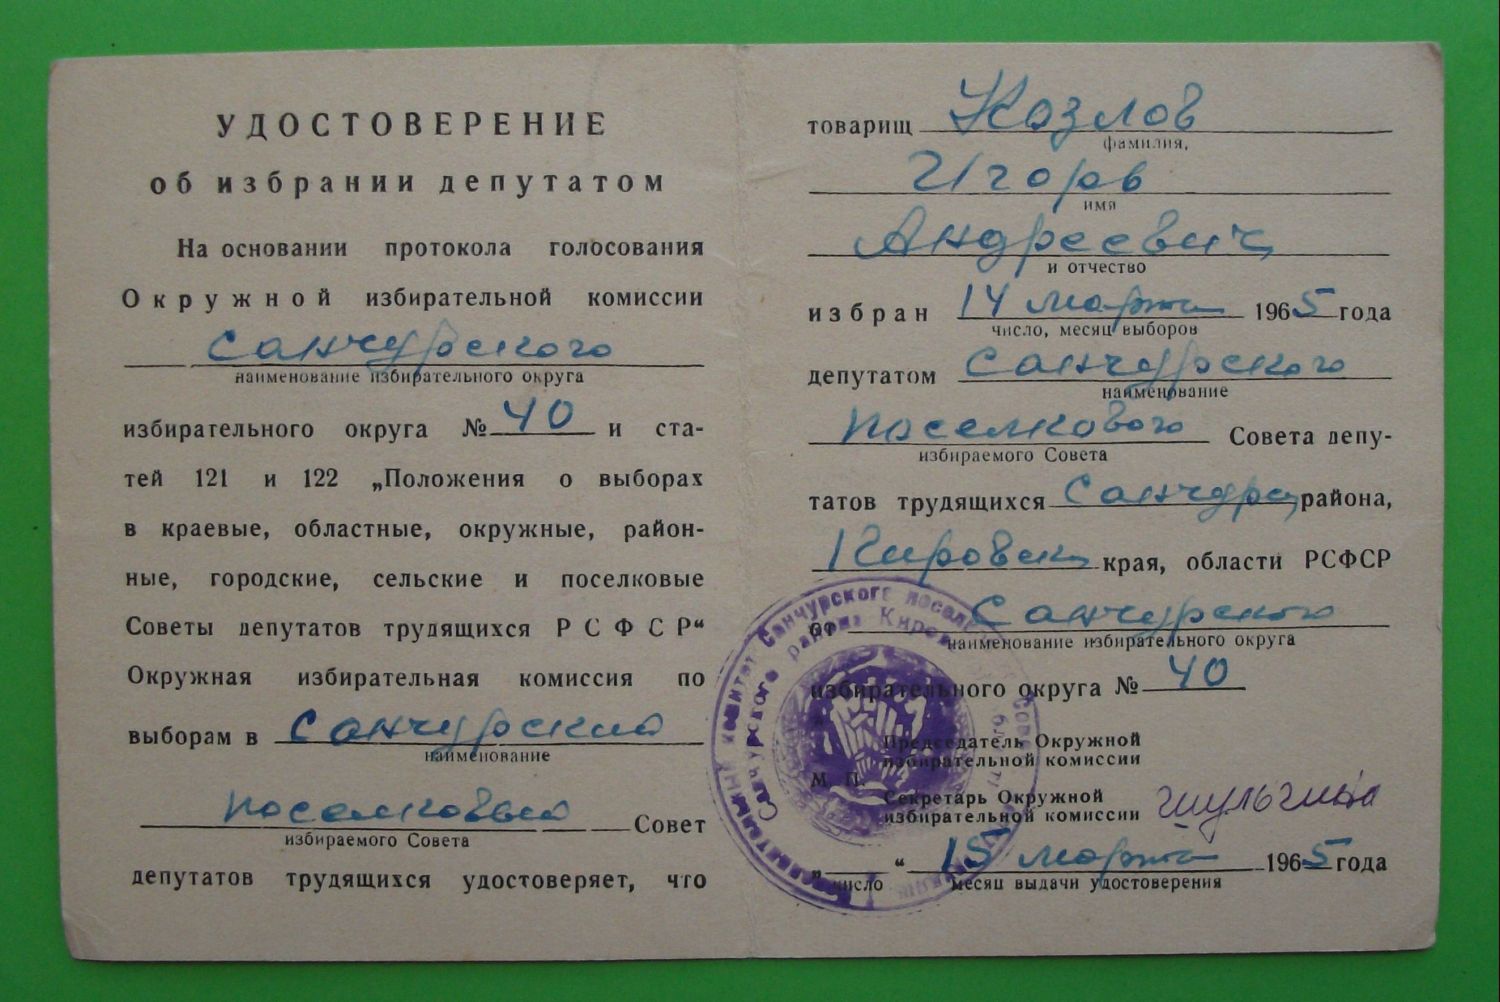 УДОСТОВЕРЕНИЕ
об избрании депутатом
На основании протокола голосования
Окружной избирательной комиссии
Санчурского
наименование избирательного округа
избирательного округа № 40 и ста-
тей 121 и 122 „Положения о выборах
в краевые, областные, окружные, район-
ные, городские, сельские и поселковые
Советы депутатов трудящихся РСФСР“
Окружная избирательная комиссия по
выборам в Санчурский
наименование
поселковый Совет
избираемого Совета
депутатов трудящихся удостоверяет, что
товарищ Козлов
фамилия,
Игорь
имя
Андреевич
и отчество
избран 14 марта 1965 года
число, месяц выборов
депутатом Санчурского
наименование
поселкового Совета депу-
избираемого Совета
татов трудящихся Санчурск района,
Кировск края, области РСФСР
от Санчурского
наименование избирательного округа
избирательного округа № 40
Председатель Окружной
избирательной комиссии
М. П.
Секретарь Окружной
избирательной комиссии Шульгина
„ “ 15 марта 1965 года
число месяц выдачи удостоверения
Санчурского поселк
Санчурского района Киров